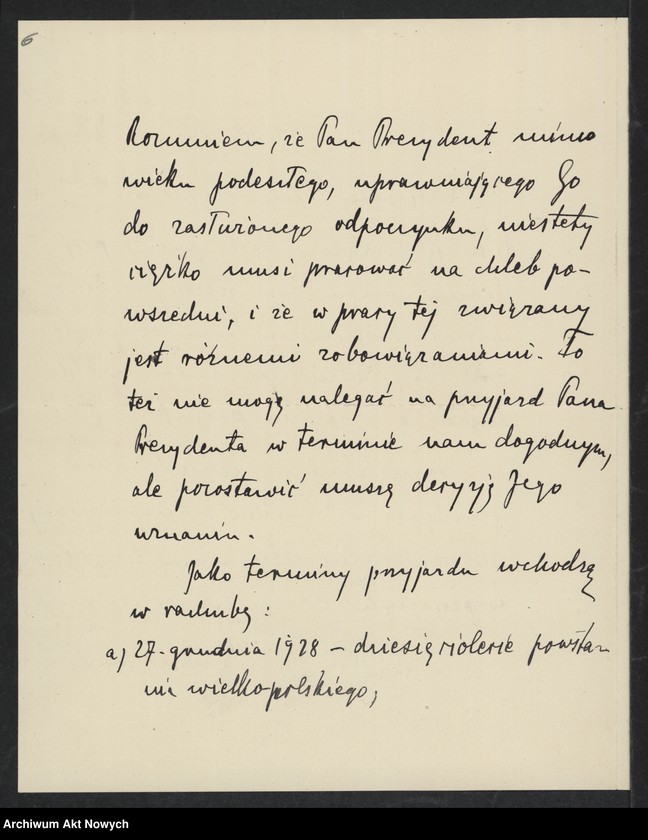 6
Rozumiem, że Pan Prezydent mimo
wieku podeszłego, uprawniającego Go
do zasłużonego odpoczynku, niestety
ciężko musi pracować na chleb po-
wszedni, i że w pracy tej związany
jest różnemi zobowiązaniami. To
też nie mogę nalegać na przyjazd Pana
Prezydenta w terminie nam dogodnym,
ale pozostawić muszę decyzję Jego
uznaniu.
Jako terminy przyjazdu wchodzą
w rachubę:
a) 27. grudnia 1928 – dziesięciolecie powsta-
nia wielkopolskiego,
Archiwum Akt Nowych